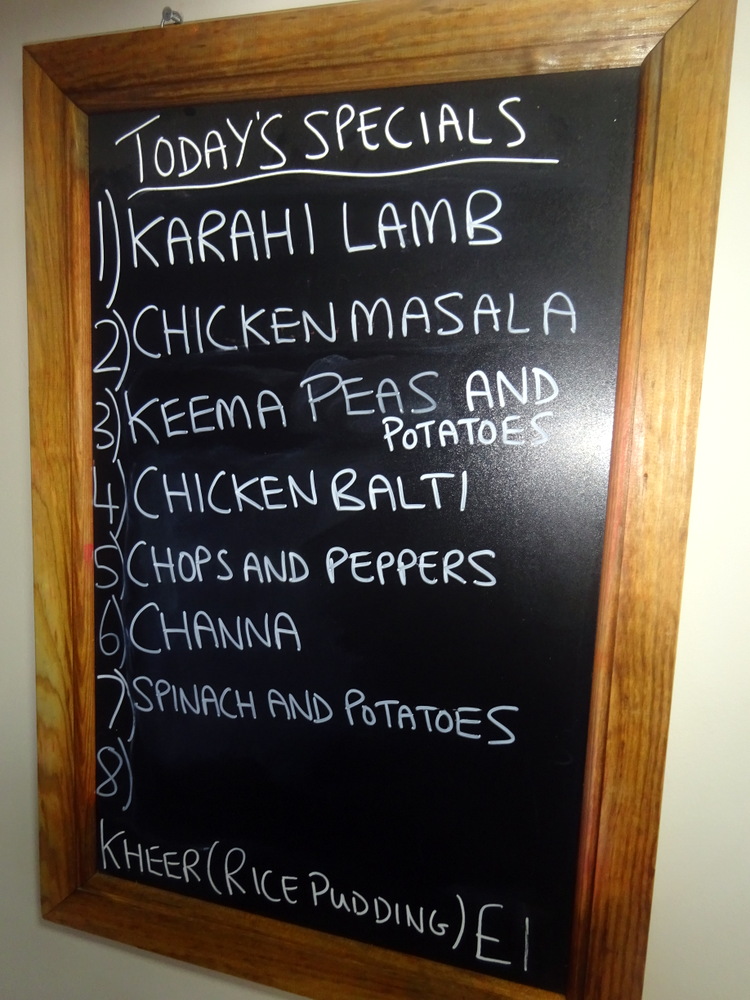 TODAY'S SPECIALS
1) KARAHI LAMB
2) CHICKEN MASALA
3) KEEMA PEAS AND
POTATOES
4) CHICKEN BALTI
5) CHOPS AND PEPPERS
6) CHANNA
7) SPINACH AND POTATOES
8)
KHEER (RICE PUDDING) £1